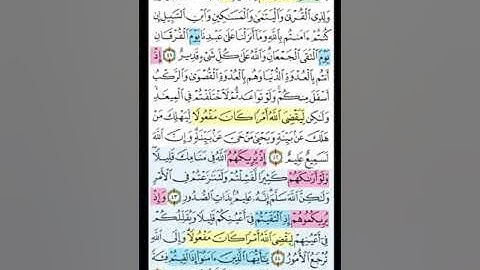 وَلِذِي ٱلْقُرْبَىٰ وَٱلْيَتَٰمَىٰ وَٱلْمَسَٰكِينِ وَٱبْنِ ٱلسَّبِيلِ إِن
كُنتُمْ ءَامَنتُم بِٱللَّهِ وَمَآ أَنزَلْنَا عَلَىٰ عَبْدِنَا يَوْمَ ٱلْفُرْقَانِ
يَوْمَ ٱلْتَقَى ٱلْجَمْعَانِ وَٱللَّهُ عَلَىٰ كُلِّ شَىْءٍ قَدِيرٌ ٤١ إِذْ
أَنتُم بِٱلْعُدْوَةِ ٱلدُّنْيَا وَهُم بِٱلْعُدْوَةِ ٱلْقُصْوَىٰ وَٱلرَّكْبُ
أَسْفَلَ مِنكُمْ وَلَوْ تَوَاعَدتُّمْ لَٱخْتَلَفْتُمْ فِى ٱلْمِيعَٰدِ
وَلَٰكِن لِّيَقْضِىَ ٱللَّهُ أَمْرًا كَانَ مَفْعُولًا لِّيَهْلِكَ مَنْ
هَلَكَ عَنۢ بَيِّنَةٍ وَيَحْيَىٰ مَنْ حَىَّ عَنۢ بَيِّنَةٍ وَإِنَّ ٱللَّهَ
لَسَمِيعٌ عَلِيمٌ ٤٢ إِذْ يُرِيكَهُمُ ٱللَّهُ فِى مَنَامِكَ قَلِيلًا
وَلَوْ أَرَىٰكَهُمْ كَثِيرًا لَّفَشِلْتُمْ وَلَتَنَٰزَعْتُمْ فِى ٱلْأَمْرِ
وَلَٰكِنَّ ٱللَّهَ سَلَّمَ إِنَّهُۥ عَلِيمٌۢ بِذَاتِ ٱلصُّدُورِ ٤٣ وَإِذْ
يُرِيكُمُوهُمْ إِذِ ٱلْتَقَيْتُمْ فِىٓ أَعْيُنِكُمْ قَلِيلًا وَيُقَلِّلُكُمْ
فِىٓ أَعْيُنِهِمْ لِيَقْضِىَ ٱللَّهُ أَمْرًا كَانَ مَفْعُولًا وَإِلَى ٱللَّهِ
تُرْجَعُ ٱلْأُمُورُ ٤٤ يَٰٓأَيُّهَا ٱلَّذِينَ ءَامَنُوٓا۟ إِذَا لَقِيتُمْ فِئَةً